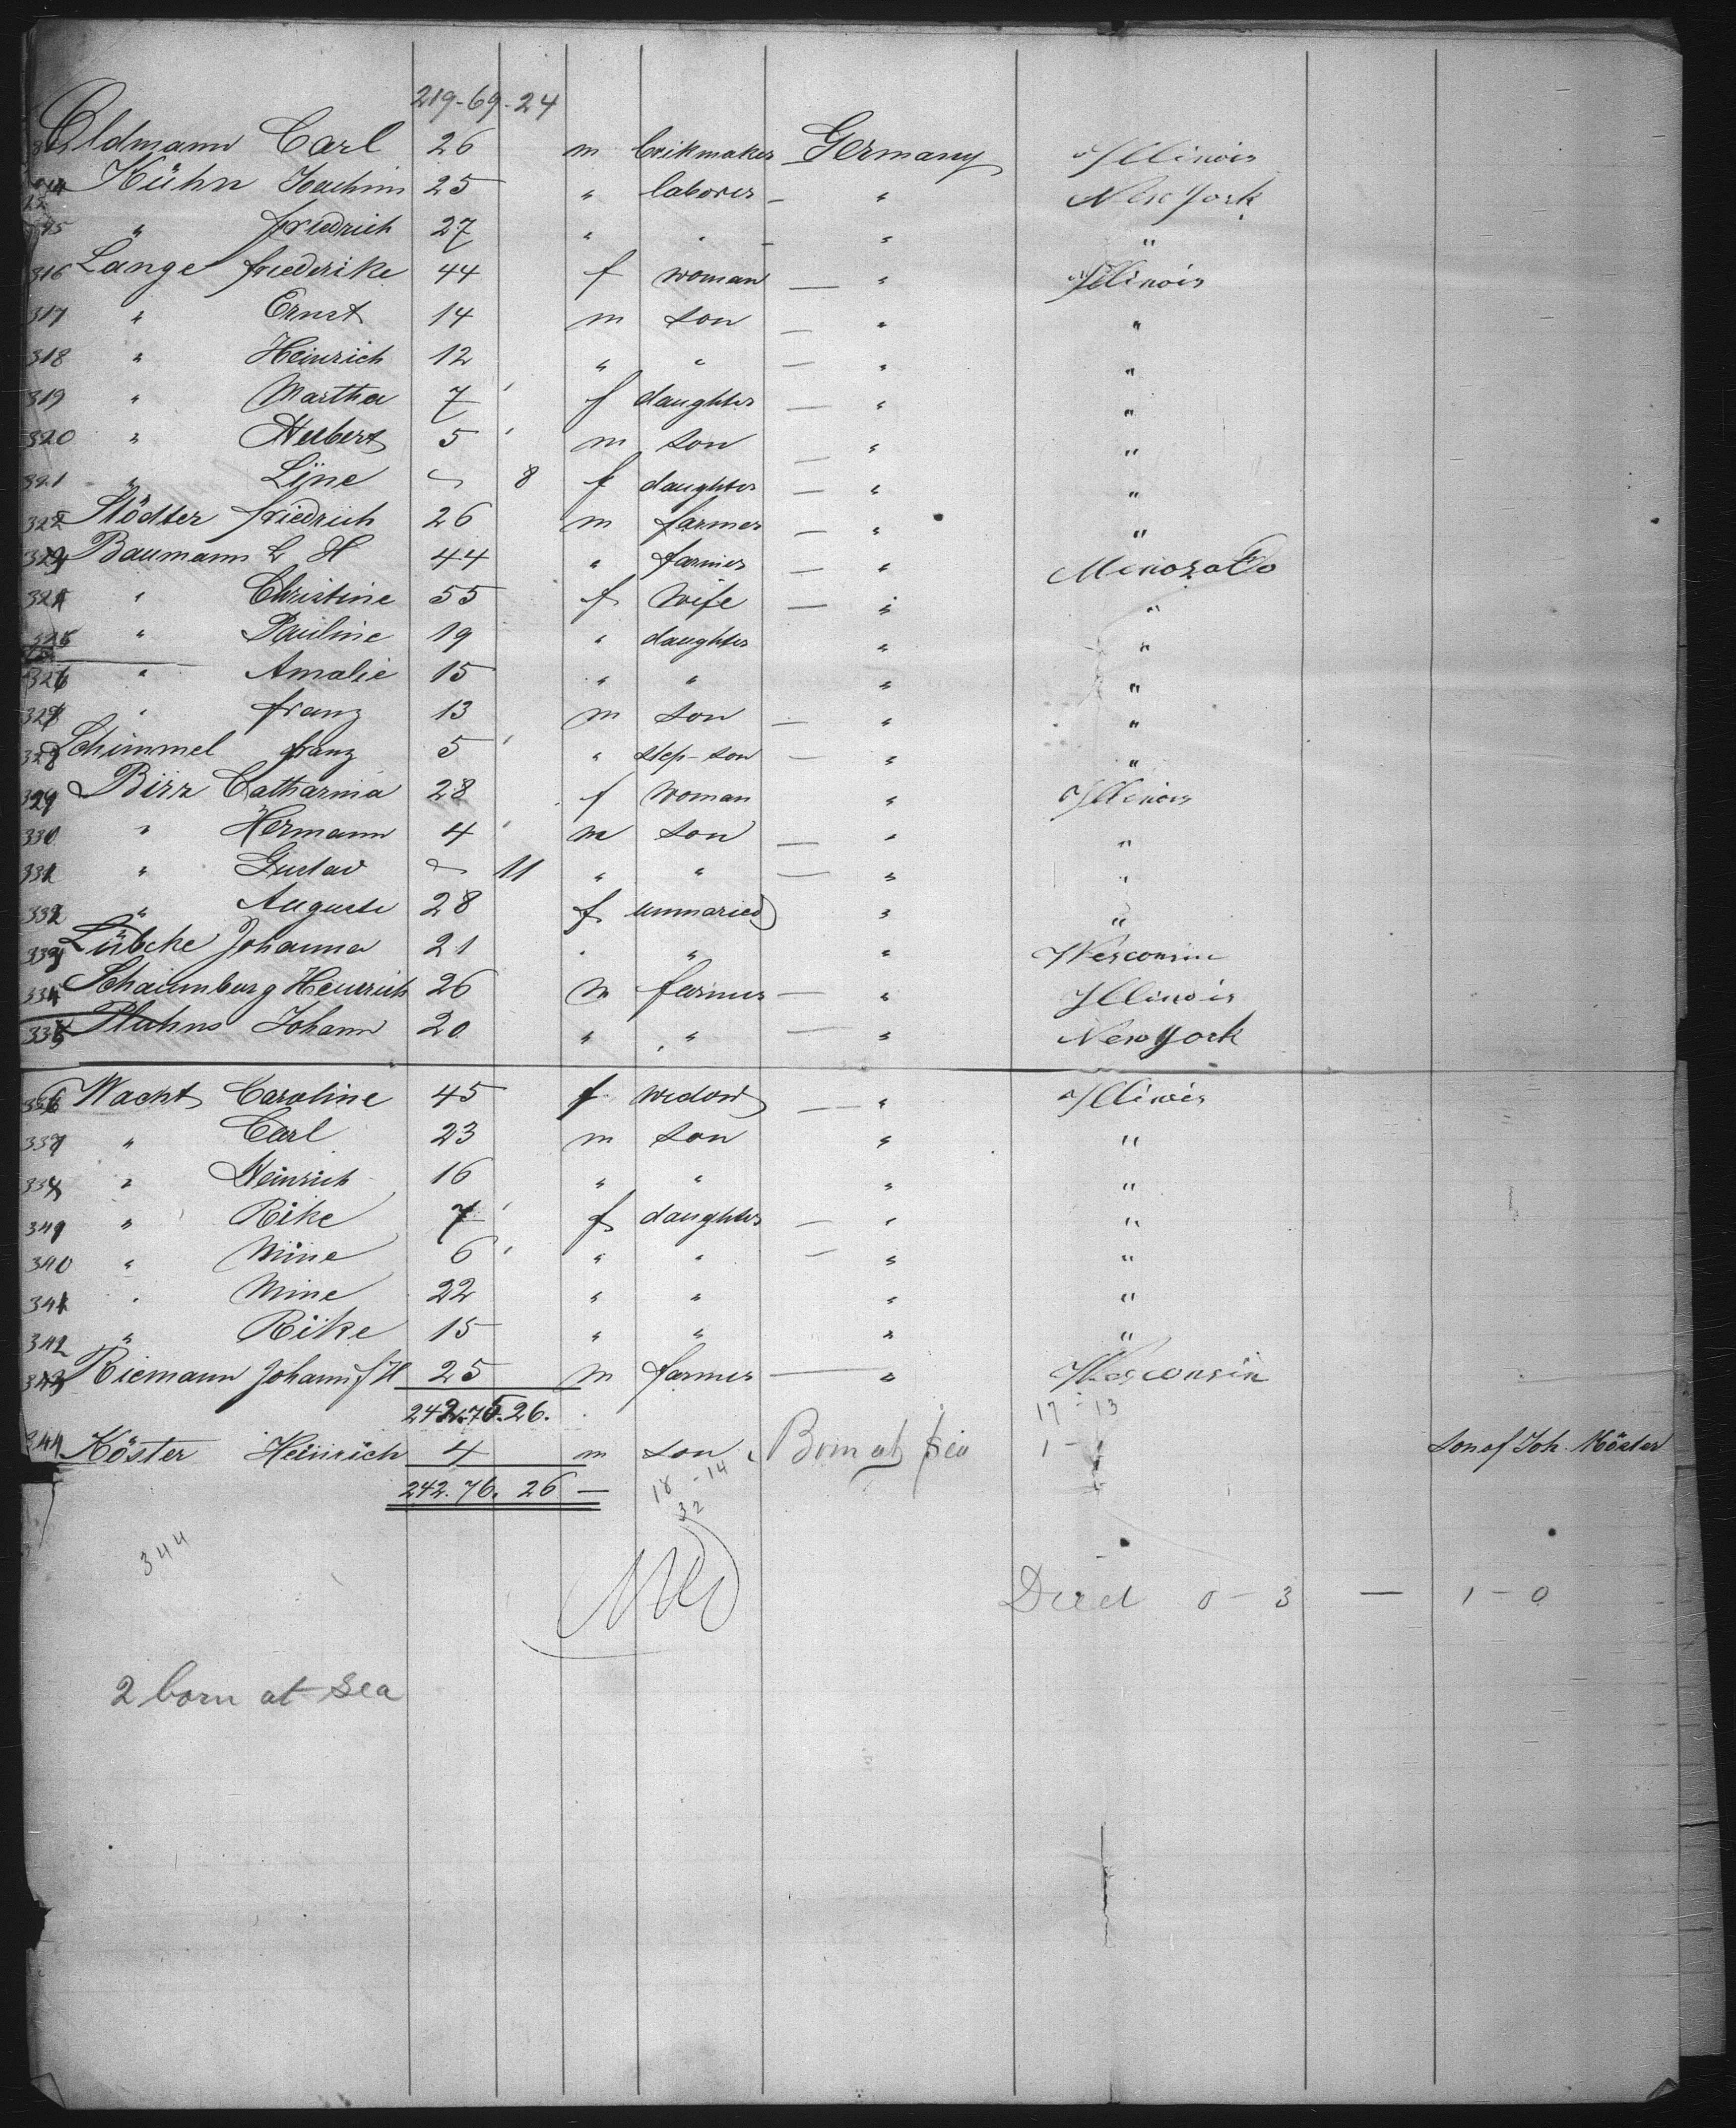 219-69-24
Oldmann Carl 26 m brikmaker Germany Illinois
Kühn Joachim 25 " laborer " New York
" Friedrich 27 " " " "
316 Lange Friederike 44 f woman " Illinois
317 " Ernst 14 m son " "
318 " Heinrich 12 " " " "
319 " Martha 7 f daughter " "
320 " Herbert 5 m son " "
321 " Line 8 f daughter " "
322 Stödter Friedrich 26 m farmer " "
323 Baumann L H 44 " farmer "
324 " Christine 55 f wife " "
325 " Pauline 19 " daughter " "
326 " Amalie 15 " " " "
327 " Franz 13 m son " "
328 Schimmel Franz 5 " step-son " "
329 Birr Catharina 28 f woman " Illinois
330 " Hermann 4 m son " "
331 " Gustav 11 " " " "
332 " Auguste 28 f unmaried " "
333 Lübcke Johanna 21 " " " Wesconsin
334 Schaumburg Heinrich 26 m farmer " Illinois
335 Johann 20 " " " New York
336 Wacht Caroline 45 f widow " Illinois
337 " Carl 23 m son " "
" Heinrich 16 " " " "
" Rike 7 f daughter " "
340 " Mine 6 " " " "
341 " Mine 22 " " " "
342 " Rike 15 " " " "
343 Riemann Johann f H 25 m farmer " Wesconsin
242.75.26. 17 - 13
344 Köster Heinrich 4 m son Born at sea 1 - 1 son of Joh. Köster
242.76.26 — 18 - 14
32
344
Died 0 - 3 — 1 - 0
2 born at sea